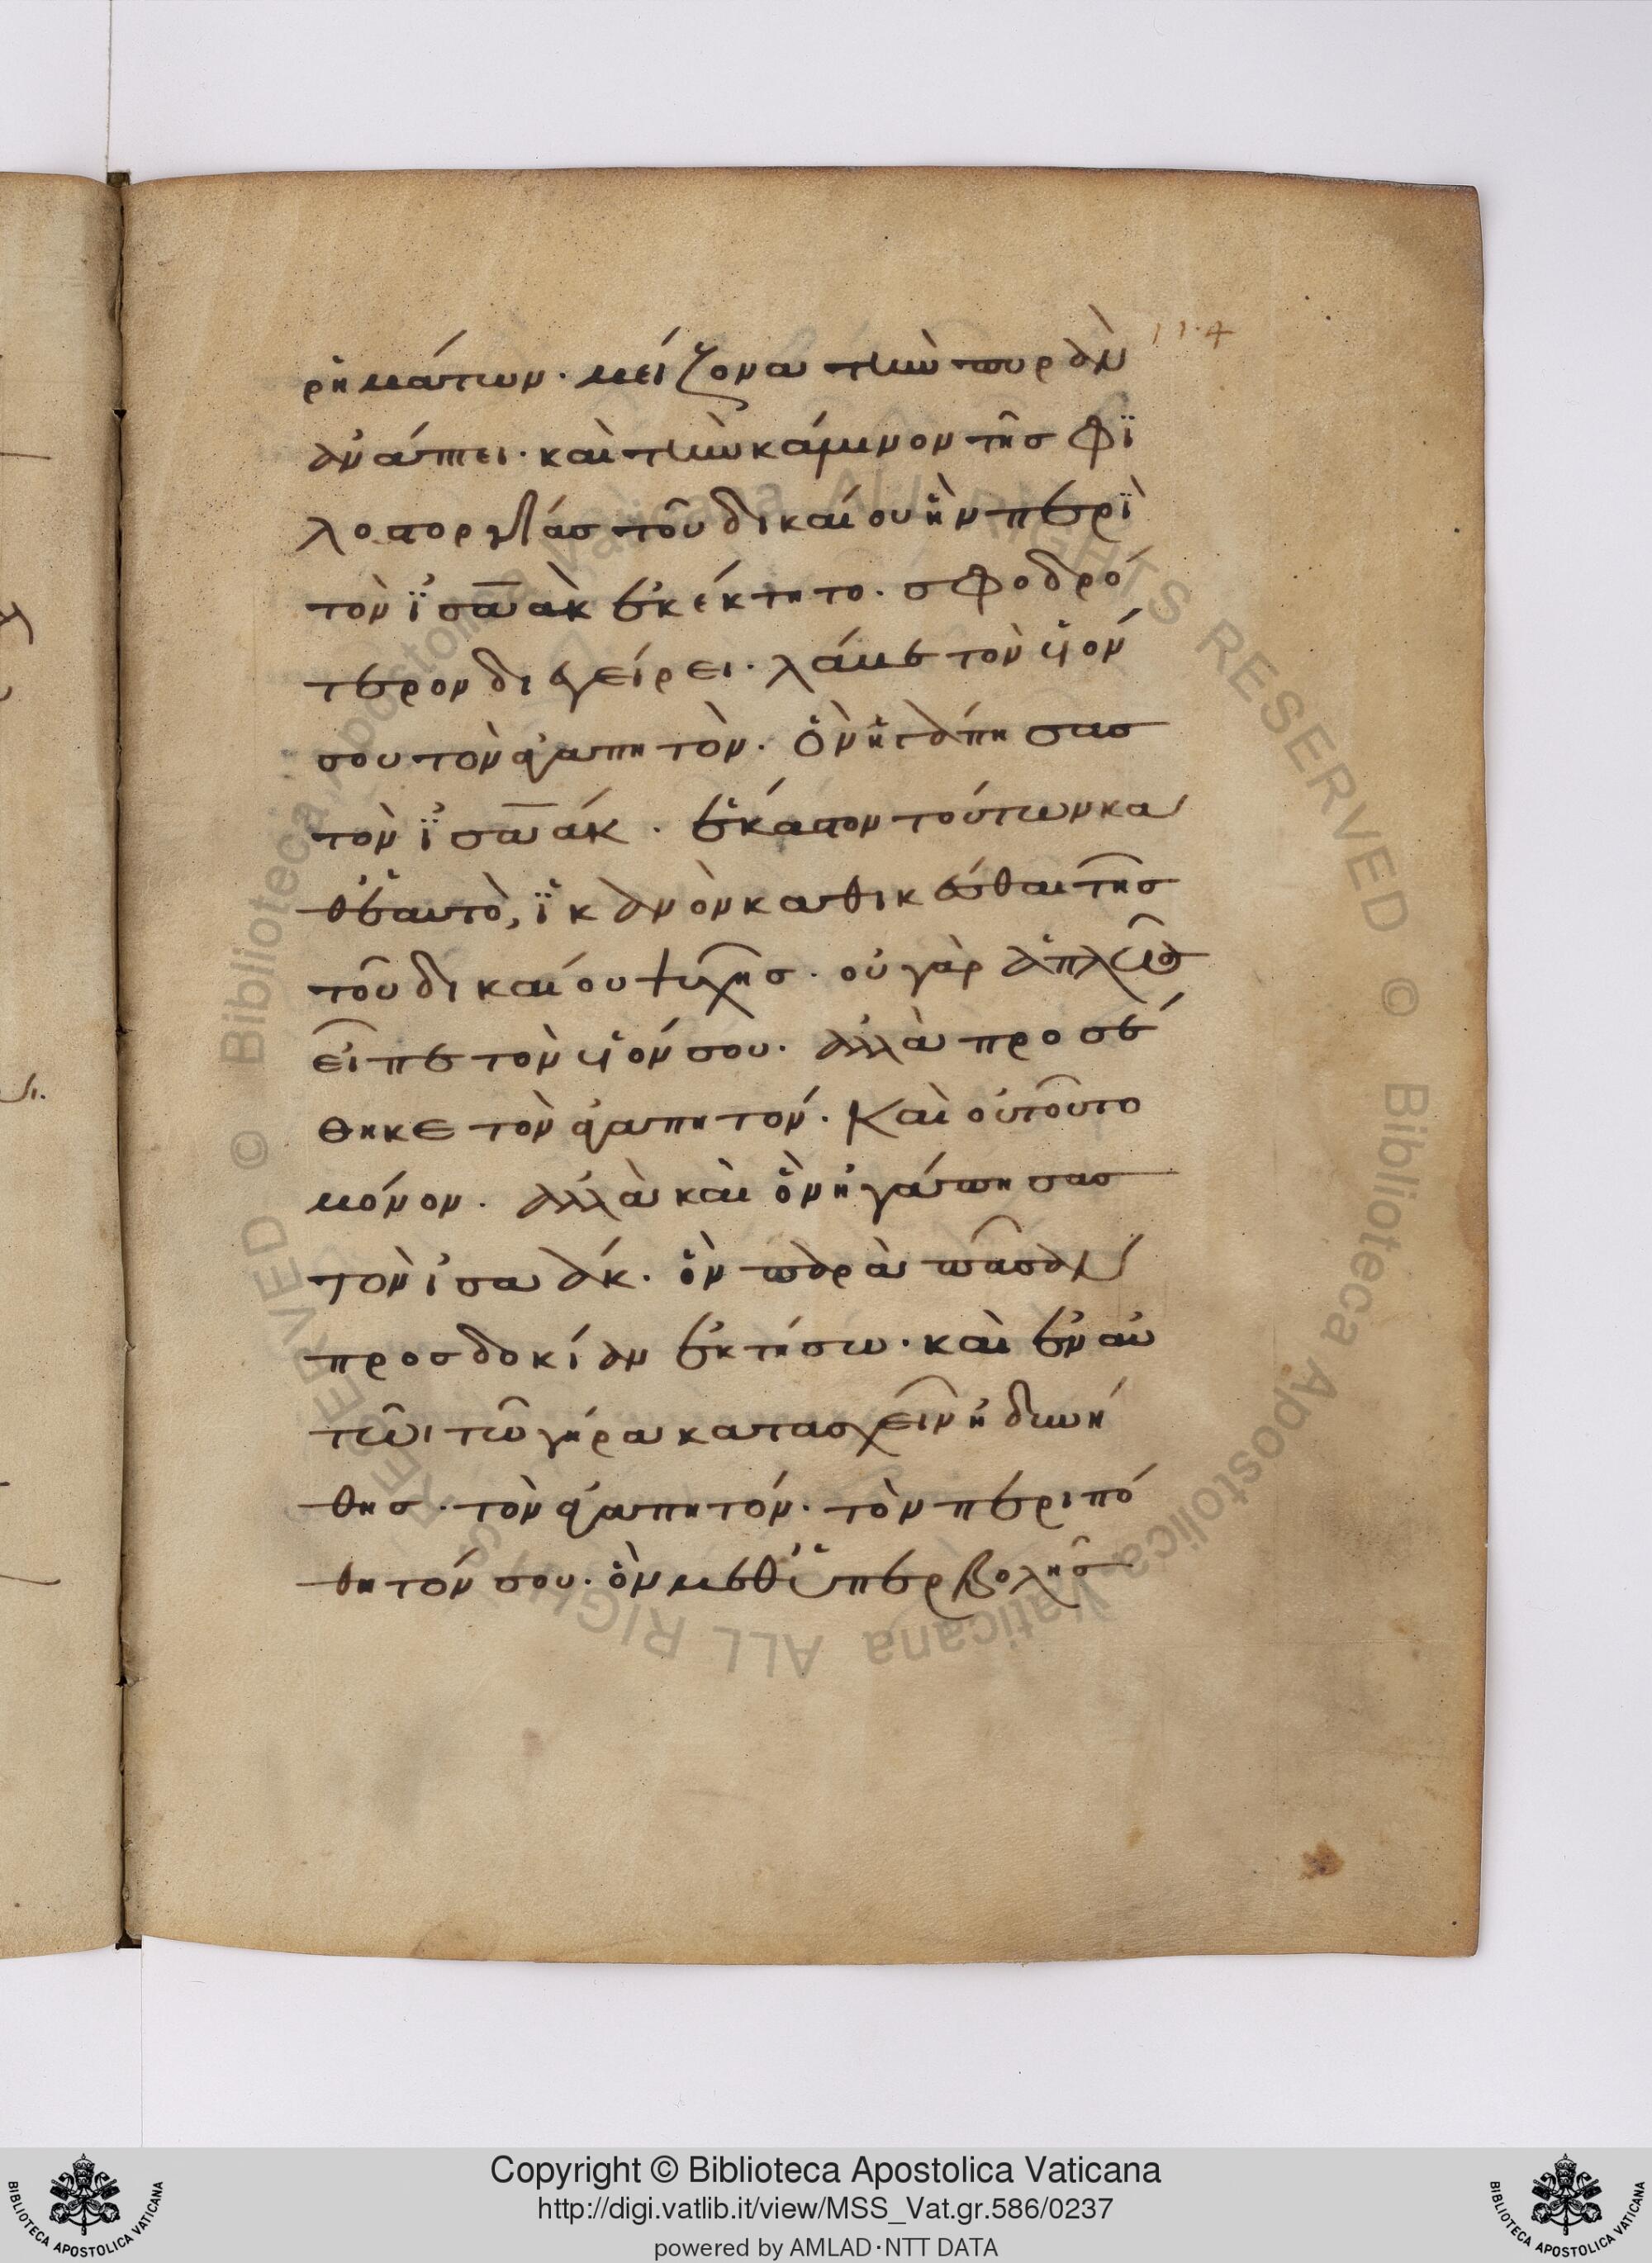 114
ρημάτων· μείζονα τὴν πυρὰν
ἀνάπτει· καὶ τὴν κάμινον τῆς φϊ
λοστοργίας τοῦ δικαίου ἣν περϊ
τὸν ἰ̈σαὰκ ἐκέκτητο· σφοδρό
τερον διεγείρει· λάβε τὸν υἱόν
σου τὸν ἀγαπητὸν· ὃν ἠγάπησας
τὸν ἰ̈σαάκ· ἕκαστον τούτων κα
θ᾿ ἑαυτὸ, ϊ̔κανὸν καθικέσθαι τῆς
τοῦ δικαίου ψυχῆς· οὐ γὰρ ἁπλῶς
εἶπε τὸν υἱόν σου· ἀλλὰ προσέ
θηκε τὸν ἀγαπητόν· Καὶ οὐ τοῦτο
μόνον· ἀλλὰ καὶ ὃν ἠγάπησας
τὸν ἰσαάκ· ὃν παρὰ πᾶσαν
προσδοκίαν ἐκτήσω· καὶ ἐν αὐ
τῶι τῶ γήρα κατασχεῖν ἠδυνή
θης· τὸν ἀγαπητόν· τὸν περιπό
θητόν σου· ὃν μεθ᾿ ὑπερβολῆς
Copyright © Biblioteca Apostolica Vaticana
http://digi.vatlib.it/view/MSS_Vat.gr.586/0237
powered by AMLAD·NTT DATA
BIBLIOTECA APOSTOLICA VATICANA
BIBLIOTECA APOSTOLICA VATICANA
© Biblioteca Apostolica Vaticana ALL RIGHTS RESERVED © Biblioteca Apostolica Vaticana ALL RIGHTS RESERVED